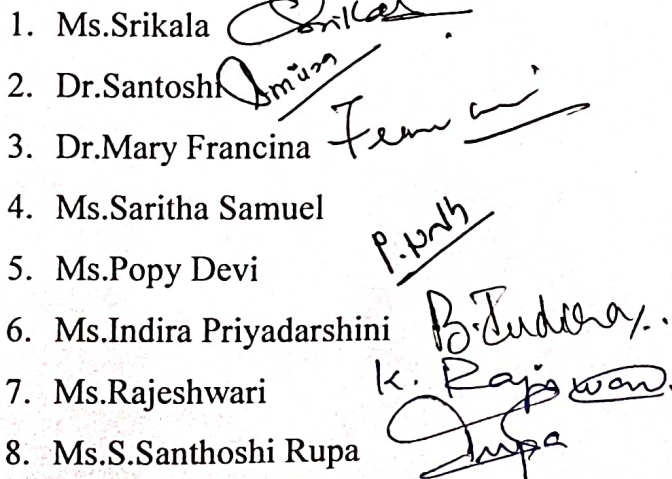 1. Ms.Srikala Srikala
2. Dr.Santoshi
3. Dr.Mary Francina
4. Ms.Saritha Samuel
5. Ms.Popy Devi
6. Ms.Indira Priyadarshini B.Indira
7. Ms.Rajeshwari K. Rajeswari
8. Ms.S.Santhoshi Rupa Rupa